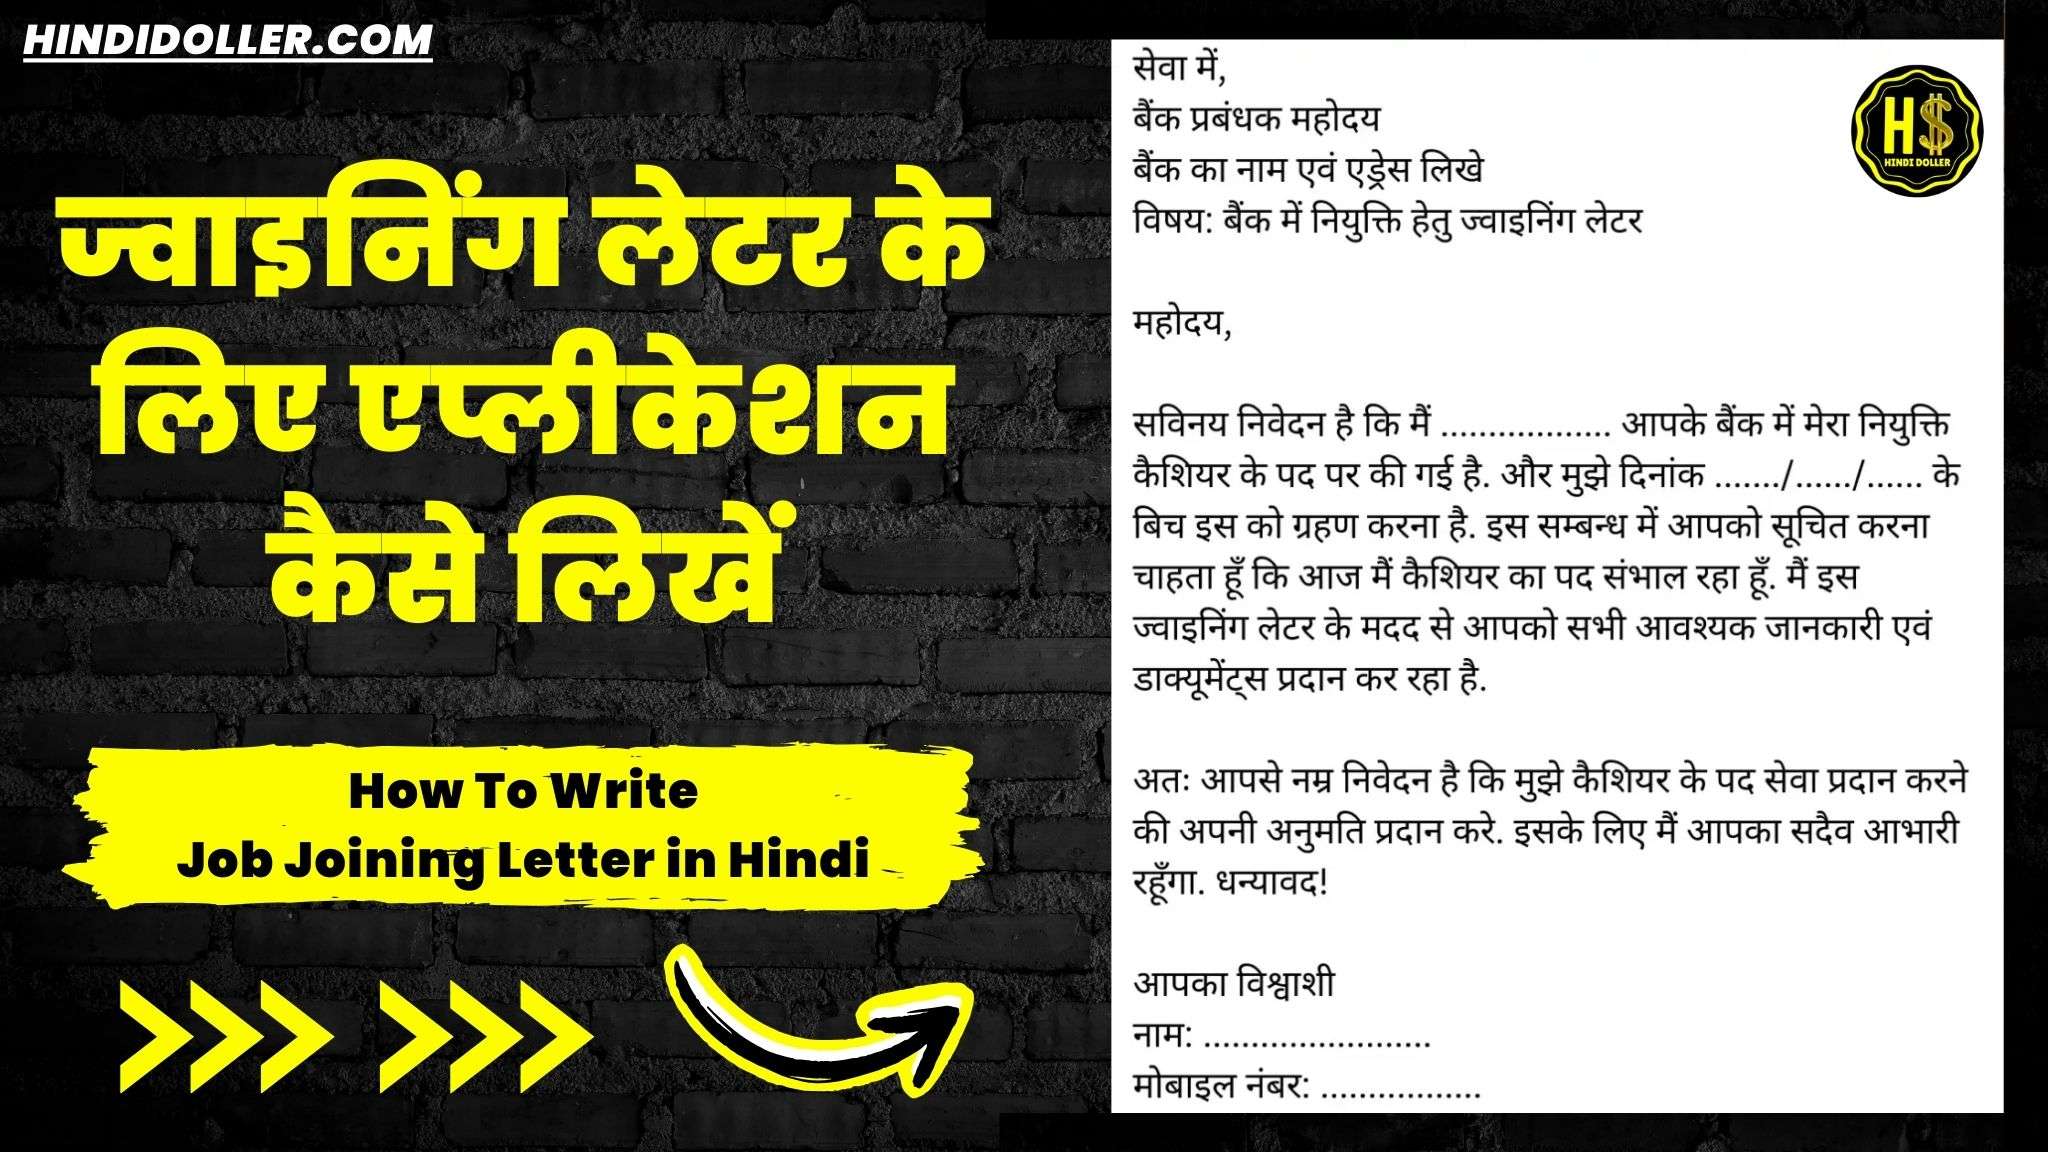 HINDIDOLLER.COM
ज्वाइनिंग लेटर के
लिए एप्लीकेशन
कैसे लिखें
How To Write
Job Joining Letter in Hindi
H$
HINDI DOLLER
सेवा में,
बैंक प्रबंधक महोदय
बैंक का नाम एवं एड्रेस लिखे
विषय: बैंक में नियुक्ति हेतु ज्वाइनिंग लेटर
महोदय,
सविनय निवेदन है कि मैं .................. आपके बैंक में मेरा नियुक्ति
कैशियर के पद पर की गई है. और मुझे दिनांक ......./....../...... के
बिच इस को ग्रहण करना है. इस सम्बन्ध में आपको सूचित करना
चाहता हूँ कि आज मैं कैशियर का पद संभाल रहा हूँ. मैं इस
ज्वाइनिंग लेटर के मदद से आपको सभी आवश्यक जानकारी एवं
डाक्यूमेंट्स प्रदान कर रहा है.
अतः आपसे नम्र निवेदन है कि मुझे कैशियर के पद सेवा प्रदान करने
की अपनी अनुमति प्रदान करे. इसके लिए मैं आपका सदैव आभारी
रहूँगा. धन्यावद!
आपका विश्वाशी
नाम: ........................
मोबाइल नंबर: .................